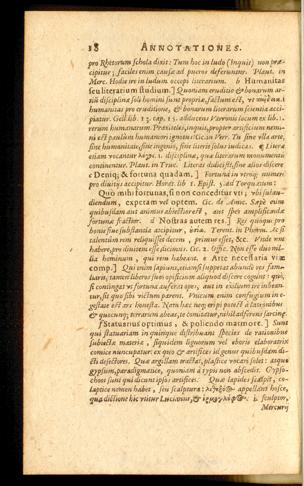 18 ANNOTATIONES.
pro Rhetorum schola dixit: Tum hoc in ludo (inquis) non præ-
cipitur; faciles enim causæ ad pueros deferuntur. Plaut. in
Merc. Hodie ire in ludum occœpi literarium. b Humanitas
seu literarium studium.] Quoniam eruditio & bonarum ar-
tiū disciplinæ soli homini sunt propriæ, factum est, vt
humanitas pro eruditione, & bonarum literarum scientia acci-
piatur. Gell. lib. 13. cap. 15. adducens Varronis locum ex lib. 1.
rerum humanarum: Praxiteles, inquit, propter artificium nemi-
ni est paulum humaniori ignotus: Cic. in Verr. Tu sine vlla arte,
sine humanitate, sine ingenio, sine literis solus iudicas. c Litera
etiam vocantur λόγοι. i. disciplinæ, quæ literarum monumentis
continentur. Plaut. in Truc. Literas didicisti, sine alios discere
e Deniq; & fortuna quadam,] Fortuna in vtroq; numero
pro diuitiis accipitur: Horat. lib. 1. Epist. 5 ad Torquatum:
Quò mihi fortunas, si non conceditur vti; vbi suau-
diendum, expetam vel optem. Cic. de Amic. Sæpè enim
quibusdam aut animus abiectior est, aut spes amplificandæ
fortunæ fractior. d Nostras autem res.] Res quoque pro
bonis siue substantia accipitur, Terent. in Phorm. Ac si
talentùm rem reliquisset decem, primus esses, &c. Vnde rem
habere, pro diuitem esse dicimus. Cic. 2. Offic. Non esse duo mil-
lia hominum, qui rem haberent. e Arte necessaria viæ
comp.] Qui enim sapiunt, etiamsi suppetat abundè res fami-
liaris, tamen liberos suos opificium aliquod discere cogunt: quò,
si contingat vt fortunæ auferat opes, aut in exilium ire iubean-
tur, sit quo sibi victum parent. Viuum enim confugium in e-
gestate est ars honesta. Nam hæc neq; eripi potest à latronibus
& quocunq; terrarum abeas, te comitatur, nihil adferens sarcinæ.
f Statuarius optimus, & poliendo marmore.] Sunt
qui statuariam in quinque distribuant species de ratione
subiectæ materiæ, siquidem lignorum vel eboris elaboratrix
comice nuncupatur: ex quo & artifices id genus quibusdam di-
cti desectores. Quæ argillam tractat, plastice vocari solet: atque
gypsum, paradigmatice, quoniam à typis non abscedit. Gypso-
chos sunt qui dicunt ipsos artifices. Quæ lapides scalpit, co-
laptice nomen habet, seu scalptura: appellant hosce,
qua dictione hic vtitur Lucianus, & i. sculptor,
Mercury